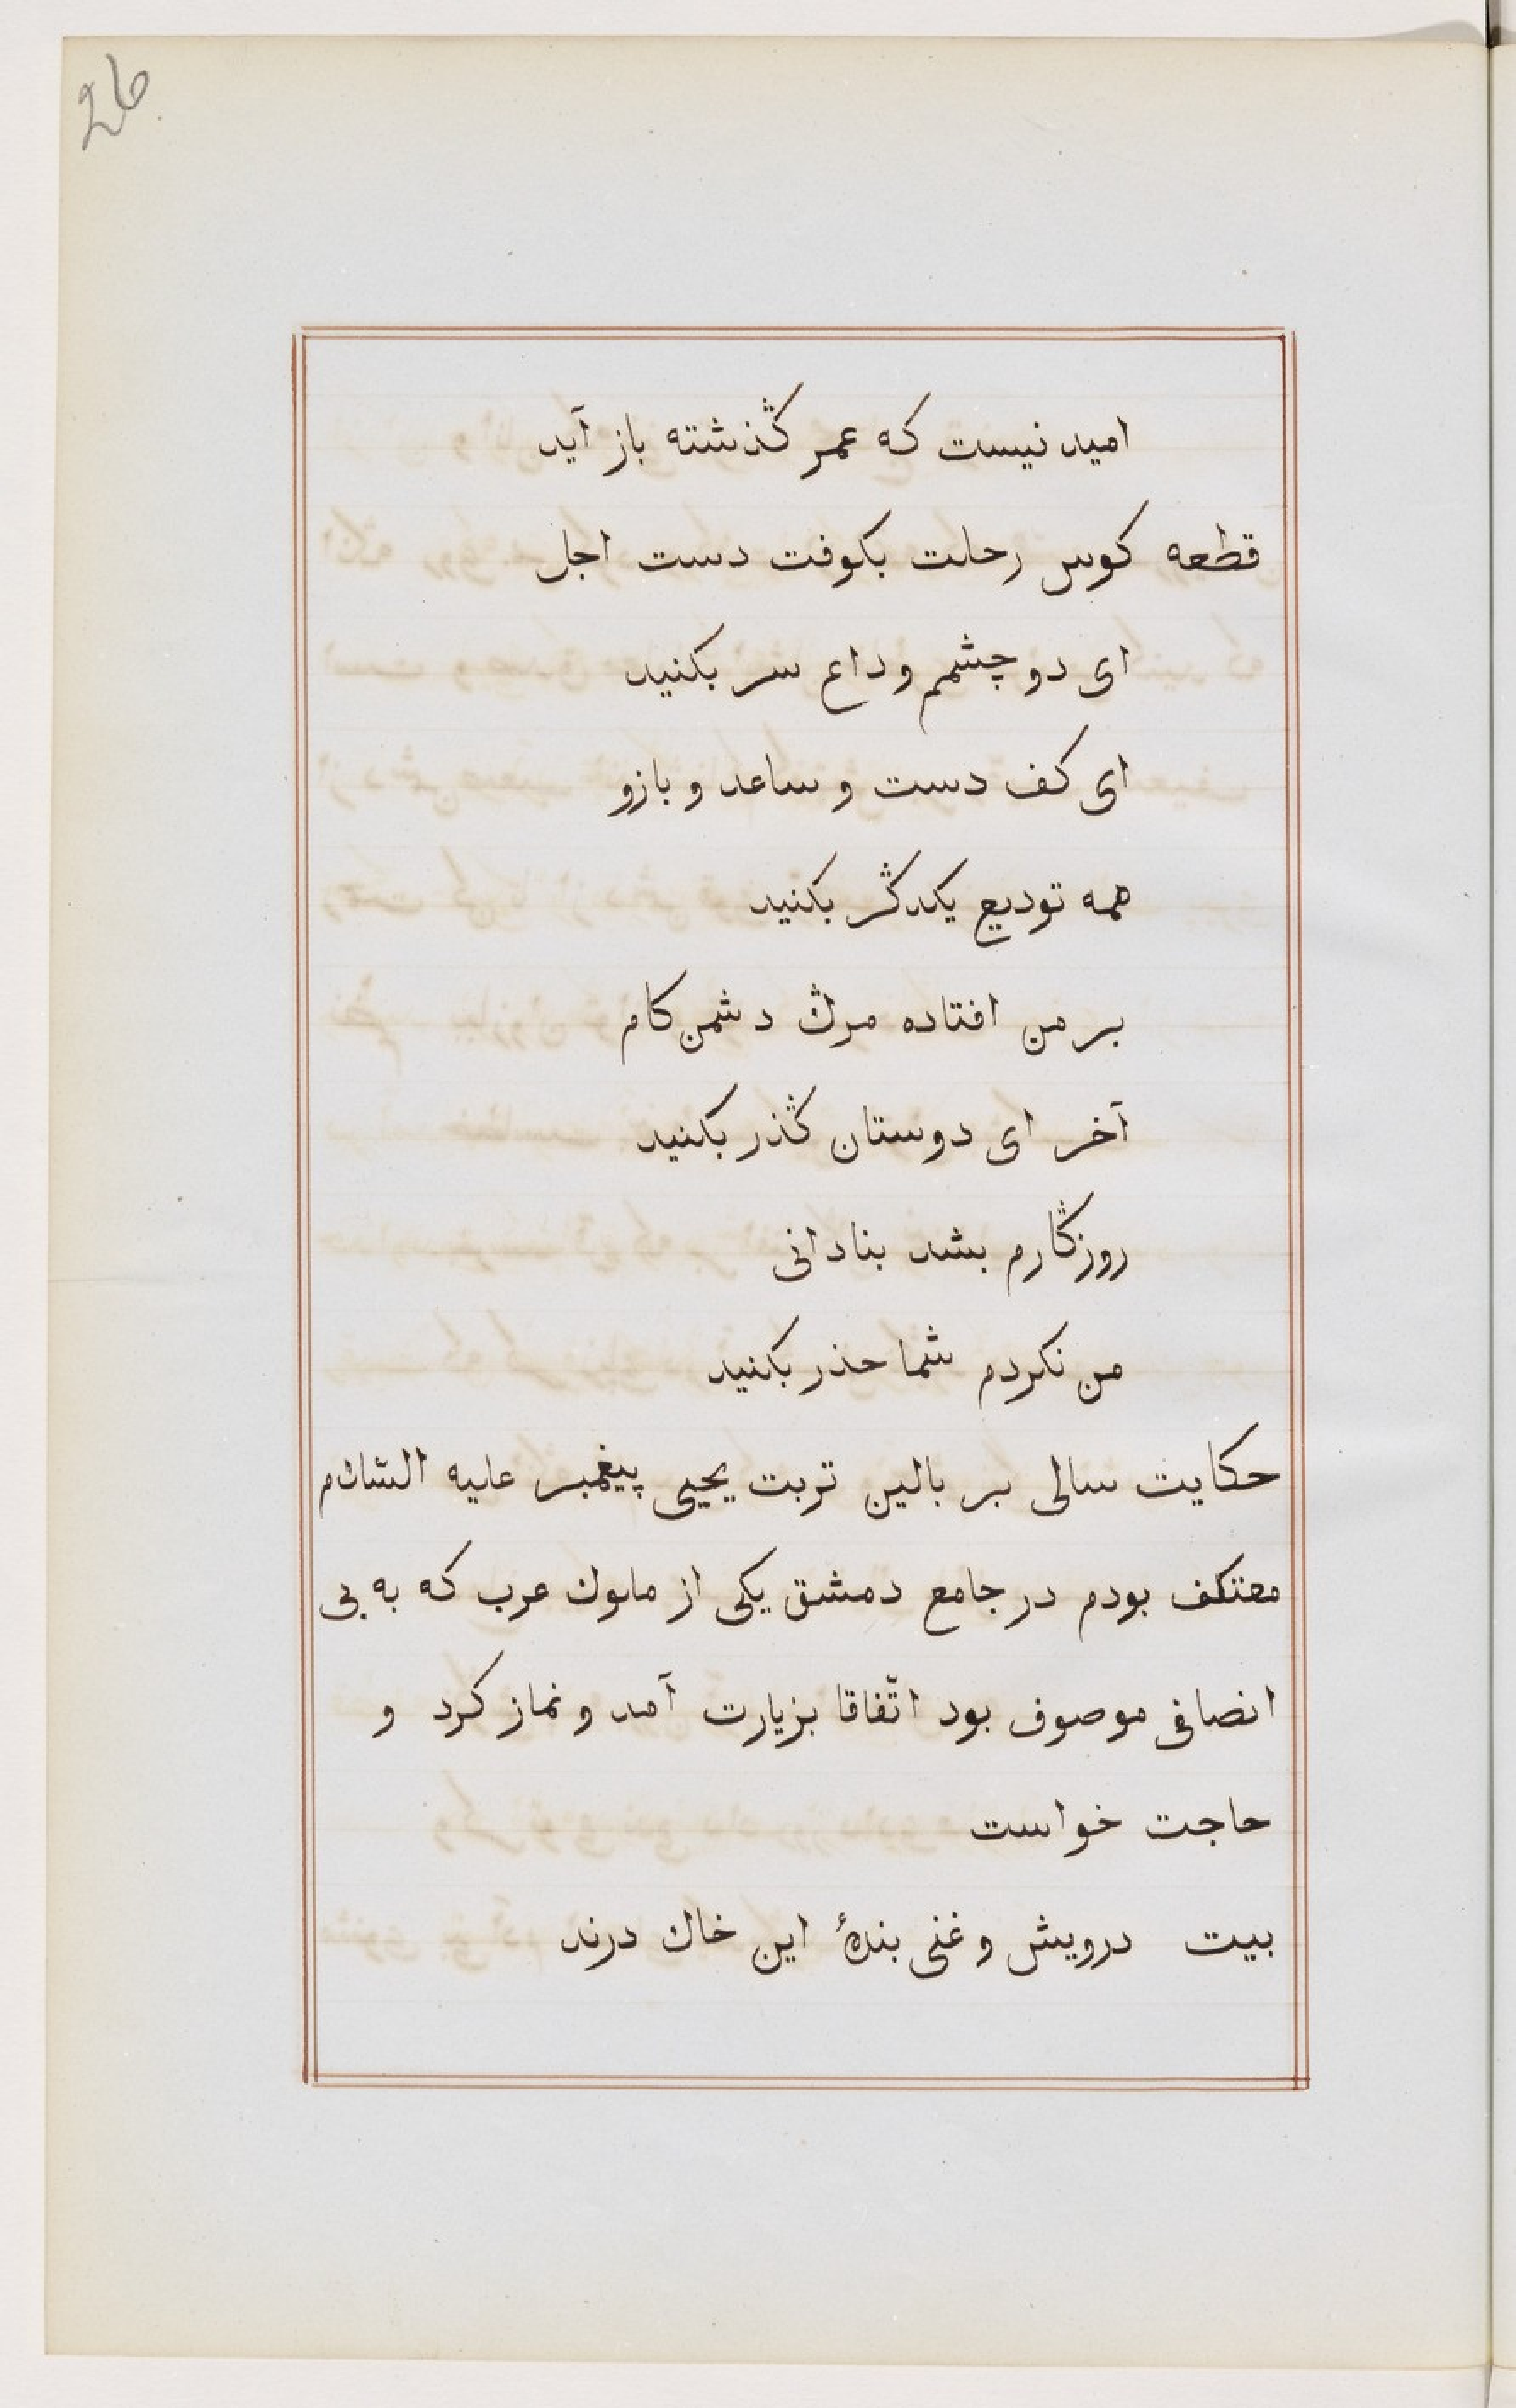 26
امید نیست که عمر گذشته باز آید
قطعه کوس رحلت بکوفت دست اجل
ای دو چشمم وداع سر بکنید
ای کف دست و ساعد و بازو
همه تودیع یکدگر بکنید
بر من افتاده مرگ دشمن کام
آخر ای دوستان گذر بکنید
روزگارم بشد بنادانی
من نکردم شما حذر بکنید
حکایت سالی بر بالین تربت یحیی پیغمبر علیه السّلام
معتکف بودم در جامع دمشق یکی از ملوك عرب که به بی
انصافی موصوف بود اتّفاقا بزیارت آمد و نماز کرد و
حاجت خواست
بیت درویش و غنی بندۀ این خاك درند